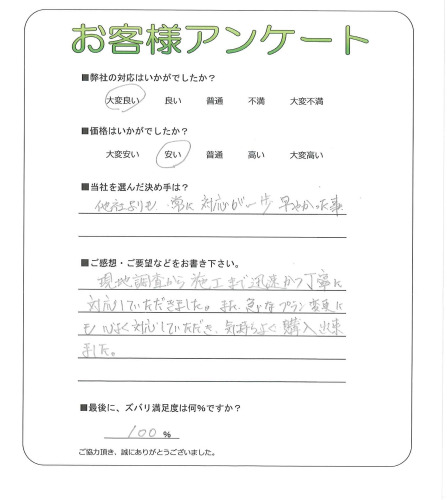 お客様アンケート
■弊社の対応はいかがでしたか？
大変良い 良い 普通 不満 大変不満
■価格はいかがでしたか？
大変安い 安い 普通 高い 大変高い
■当社を選んだ決め手は？
他社よりも 常に 対応が一歩 早かった事
■ご感想・ご要望などをお書き下さい。
現地調査から施工まで迅速かつ丁寧に
対応していただきました。また、急なプラン変更に
も心よく対応していただき、気持ちよく購入出来
ました。
■最後に、ズバリ満足度は何%ですか？
100 %
ご協力頂き、誠にありがとうございました。